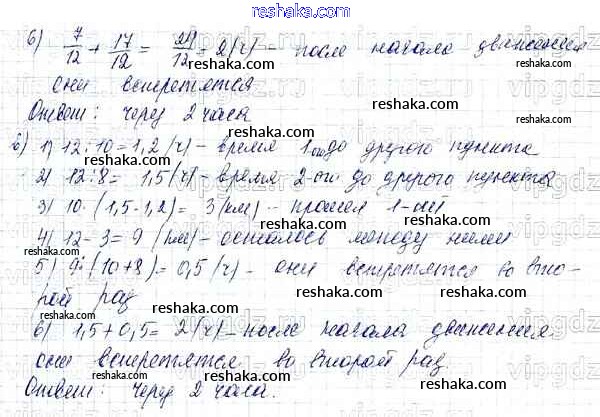 reshaka.com
б) 7/12 + 17/12 = 24/12 = 2 (ч) - после начала движения
reshaka.com
они встретятся
Ответ: через 2 часа
reshaka.com
б) 1) 12:10=1,2 (ч) - время 1-ого до другого пункта
2) 12:8= 1,5 (ч) - время 2-ого до другого пункта
3) 10·(1,5-1,2)= 3 (км) - прошел 1-ый
reshaka.com
4) 12-3=9 (км) - осталось между ними
reshaka.com
5) 9:(10+8)=0,5 (ч) - они встретятся во вто-
рой раз
reshaka.com
reshaka.com
6) 1,5+0,5= 2 (ч) - после начала движения
reshaka.com
они встретятся во второй раз
reshaka.com
Ответ: через 2 часа.
reshaka.com